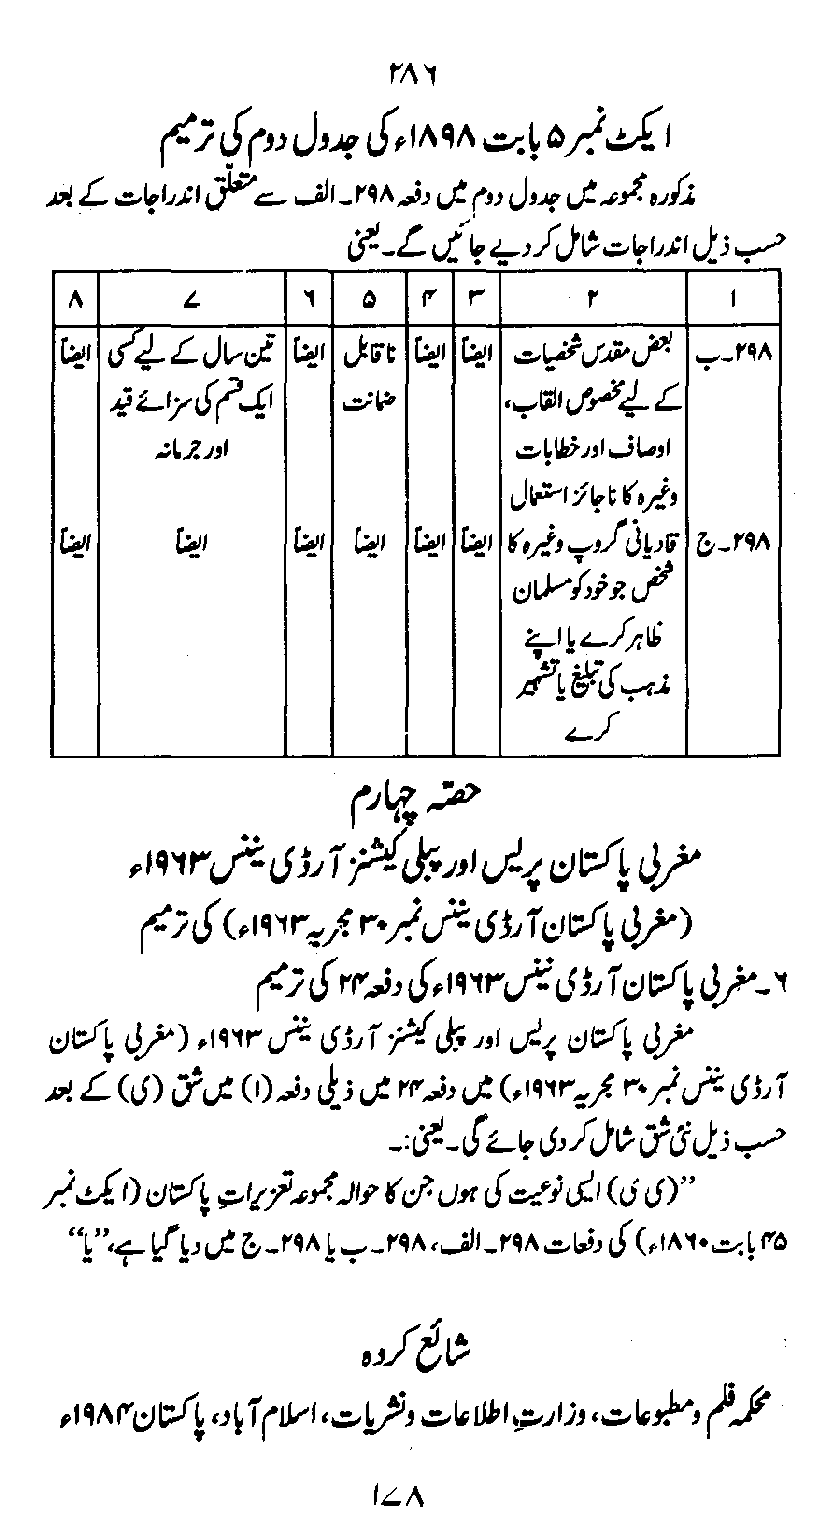 ۲۸۶
ایکٹ نمبر ۵ بابت ۱۸۹۸ء کی جدول دوم کی ترمیم
مذکورہ مجموعہ میں جدول دوم میں دفعہ ۲۹۸۔الف سے متعلّق اندراجات کے بعد
حسب ذیل اندراجات شامل کر دیے جائیں گے۔یعنی
۱ ۲ ۳ ۴ ۵ ۶ ۷ ۸
۲۹۸۔ب بعض مقدس شخصیات ایضاً ایضاً ناقابل ایضاً تین سال کے لیے کسی ایضاً
کے لیے مخصوص القاب، ضمانت ایک قسم کی سزائے قید
اوصاف اور خطابات اور جرمانہ
وغیرہ کا ناجائز استعمال
۲۹۸۔ج قادیانی گروپ وغیرہ کا ایضاً ایضاً ایضاً ایضاً ایضاً ایضاً
شخص جو خود کو مسلمان
ظاہر کرے یا اپنے
مذہب کی تبلیغ یا تشہیر
کرے
حصّہ چہارم
مغربی پاکستان پریس اور پبلی کیشنز آرڈی ننس ۱۹۶۳ء
(مغربی پاکستان آرڈی ننس نمبر ۳۰ مجریہ ۱۹۶۳ء) کی ترمیم
۶۔مغربی پاکستان آرڈی ننس ۱۹۶۳ء کی دفعہ ۲۴ کی ترمیم
مغربی پاکستان پریس اور پبلی کیشنز آرڈی ننس ۱۹۶۳ء (مغربی پاکستان
آرڈی ننس نمبر ۳۰ مجریہ ۱۹۶۳ء) میں دفعہ ۲۴ میں ذیلی دفعہ (۱) میں شق (ی) کے بعد
حسب ذیل نئی شق شامل کر دی جائے گی۔یعنی:۔
”(ی ی) ایسی نوعیت کی ہوں جن کا حوالہ مجموعہ تعزیراتِ پاکستان (ایکٹ نمبر
۴۵ بابت ۱۸۶۰ء) کی دفعات ۲۹۸۔الف، ۲۹۸۔ب یا ۲۹۸۔ج میں دیا گیا ہے،”یا“
شائع کردہ
محکمہ فلم ومطبوعات، وزارتِ اطلاعات ونشریات، اسلام آباد، پاکستان ۱۹۸۴ء
۱۷۸